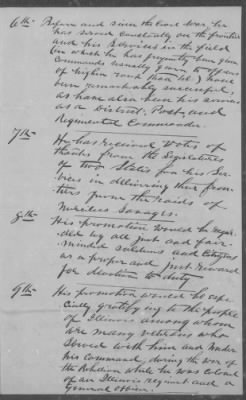 6th Before and since the Civil War, he
has served constantly on the frontier
and his services in the field
(in which he has frequently been given
Commands usually given to officers
of higher rank than his) have
been remarkably successful,
as have also been his services
as a District, Post and
Regimental Commander.
7th He has received Votes of
thanks from the Legislatures
of two States for his Ser-
vices in delivering their fron-
tiers from the raids of
Merciless Savages.
8th His promotion would be regar-
ded by all just and fair
minded soldiers and Citizens
as a proper and just reward
for devotion to duty
9th His promotion would be espe-
cially gratifying to the people
of Illinois among whom
are many veterans who
served with him and under
his command, during the war of
the Rebellion while he was Colonel
of an Illinois regiment and a
General Officer.